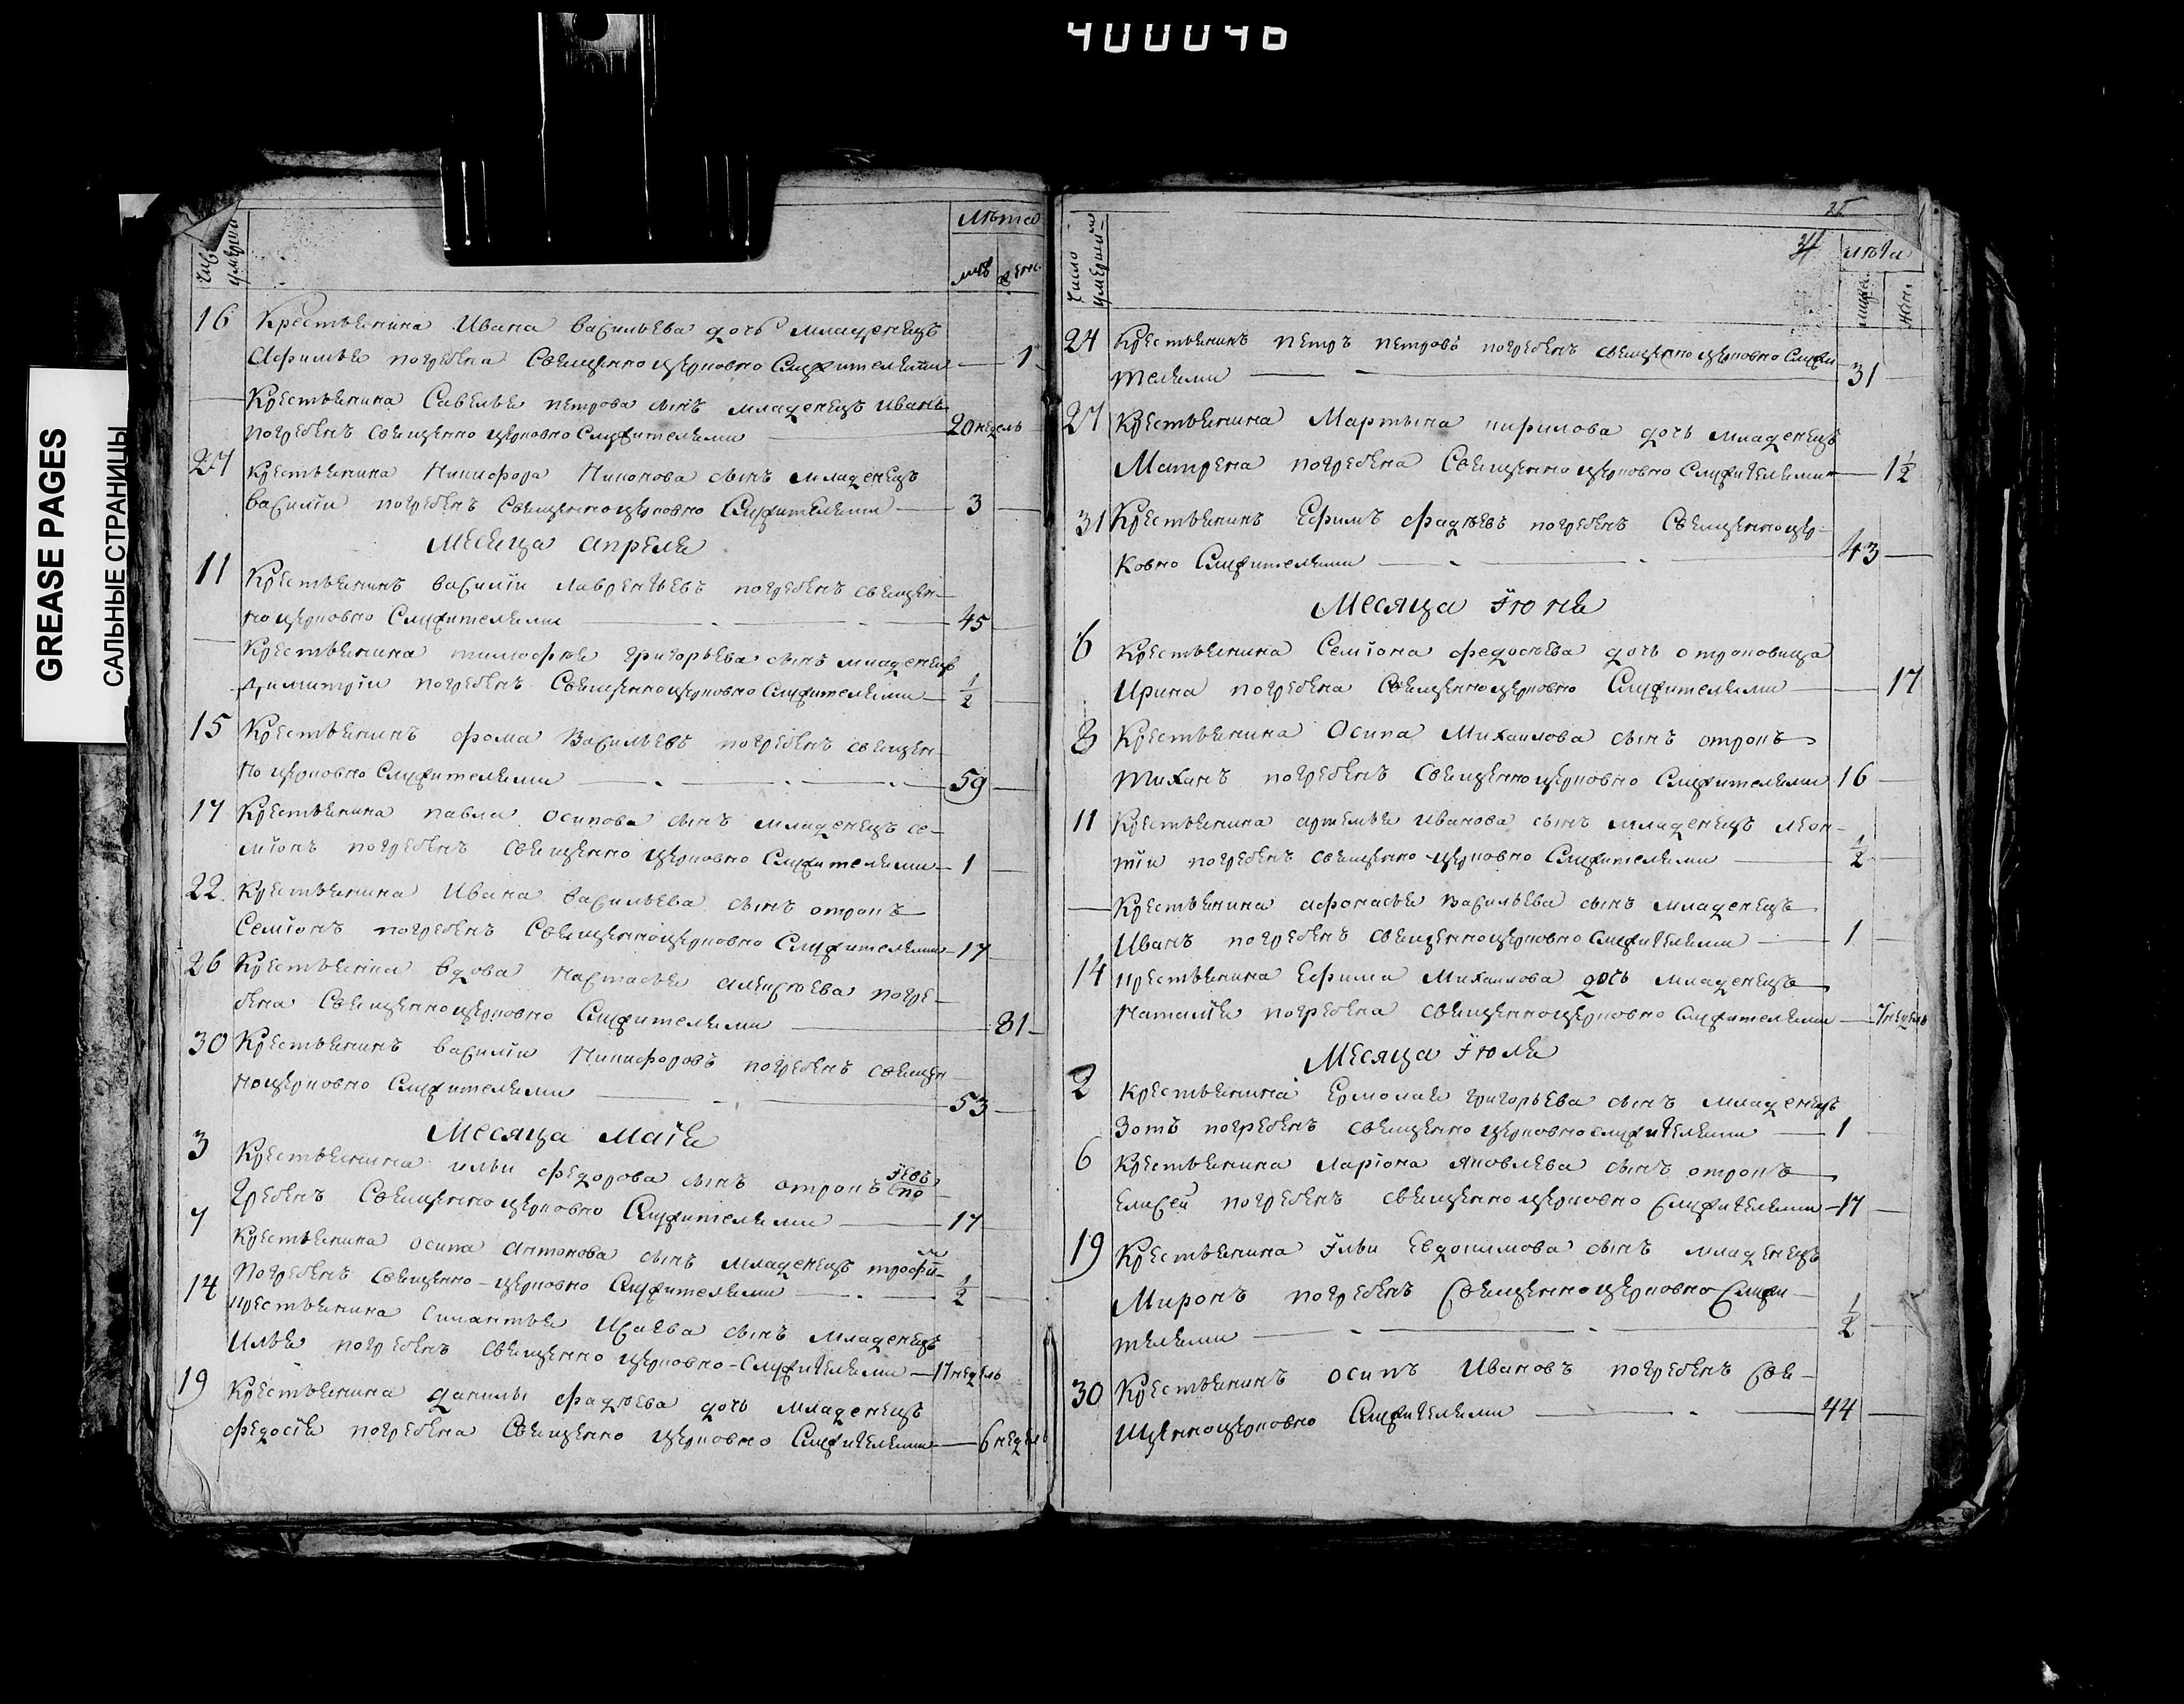 400046
GREASE PAGES
САЛЬНЫЕ СТРАНИЦЫ
Число умерши
Лѣта
муж женс.
16 Крестьянина Ивана Васильева дочь младенецъ
Афимья погребена Священноцерковно Служителями — 1
— Крестьянина Савелья Петрова сынъ младенецъ Иванъ
погребенъ священно церковно Служителями 20 недель
27 Крестьянина Никифора Никонова сынъ младенецъ
Василiй погребенъ Священноцерковно Служителями — 3
Месяца Апреля
11 Крестьянинъ Василiй Лаврентьевъ погребенъ священ-
но церковно Служителями — 45
— Крестьянина тимофѣя Григорьева сынъ младенецъ
Димитрiй погребенъ Священноцерковно Служителями — 1/2
15 Крестьянинъ фома Васильевъ погребенъ священ-
но церковно Служителями — 59
17 Крестьянина павла осипова сынъ младенецъ се-
мiонъ погребенъ священно церковно Служителями — 1
22 Крестьянина Ивана Васильева сынъ отрокъ
Семiонъ погребенъ Священноцерковно Служителями — 17
26 Крестьянка вдова Настасья Алексѣева погре-
бена Священноцерковно Служителями — 81
30 Крестьянинъ Василiй Никифоровъ погребенъ священ
ноцерковно Служителями — 53
Месяца Маiя
3 Крестьянина ильи Федорова сынъ отрокъ Iевъ по
гребенъ Священноцерковно Служителями — 17
7 Крестьянина осипа Антонова сынъ младенецъ трофи-
погребенъ священно-церковно Служителями — 1/2
14 крестьянина Силантья Исаева сынъ младенецъ
Илья погребенъ священно церковно-Служителями — 17 недель
19 Крестьянина данилы фадѣева дочь младенецъ
федосiя погребена Священно церковно Служителями — 6 недель
35
34
Число умерши
лѣта
24 Крестьянинъ петръ петровъ погребенъ священноцерковно Служи
телями — 31
27 Крестьянина Мартына кирилова дочь младенецъ
Матрена погребена Священноцерковно Служителями — 1 1/2
31 Крестьянинъ Ефимъ фадѣевъ погребенъ Священноцер-
ковно Служителями — 43
Месяца Iюня
6 Крестьянина Семiона федосѣева дочь отроковица
Ирина погребена Священноцерковно Служителями — 17
8 Крестьянина Осипа Михаилова сынъ отрокъ
тиханъ погребенъ Священноцерковно Служителями 16
11 Крестьянина артемья иванова сынъ младенецъ леон-
тiй погребенъ священно-церковно Служителями — 1/2
— Крестьянина афонасья Васильева сынъ младенецъ
Иванъ погребенъ священноцерковно Служителями — 1
14 крестьянина Ефима Михаилова дочь младенецъ
Наталiя погребена священноцерковно Служителями — 7 недель
Месяца Iюля
2 крестьянина Ермолая григорьева сынъ младенецъ
Зотъ погребенъ священно церковнослужителями — 1
6 Крестьянина ларiона яковлева сынъ отрокъ
Елисей погребенъ священно церковно служителями — 17
19 Крестьянина Iльи Евдокимова сынъ младенецъ
Миронъ погребенъ священноцерковно служи-
телями — 1/2
30 Крестьянинъ осипъ Ивановъ погребенъ свя-
щенноцерковно Служителями — 44